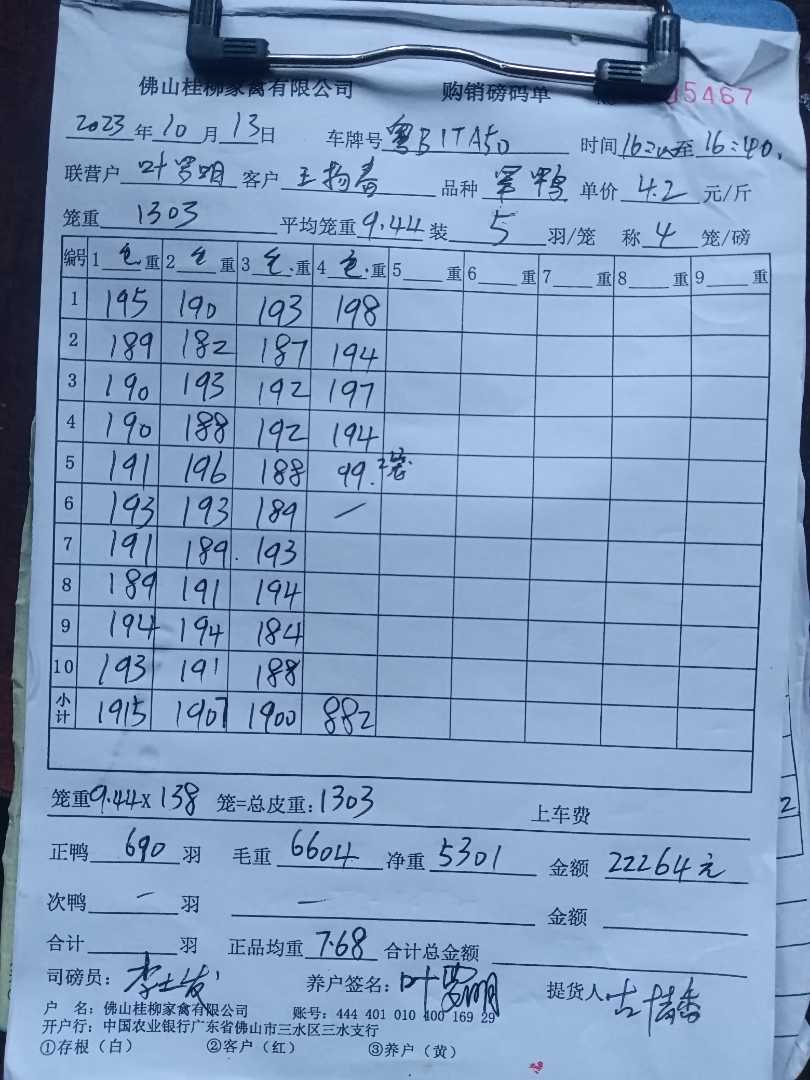 佛山桂柳家禽有限公司 购销磅码单 05467
2023年10月13日 车牌号 粤BITA50 时间16:20至16:40.
联营户 叶罗明 客户 王扬春 品种 军鸭 单价 4.2 元/斤
笼重 1303 平均笼重9.44 装 5 羽/笼 称 4 笼/磅
编号 1 毛 重 2 毛 重 3 毛 重 4 毛 重 5 重 6 重 7 重 8 重 9 重
1 195 190 193 198
2 189 182 187 194
3 190 193 192 197
4 190 188 192 194
5 191 196 188 99. 2笼
6 193 193 189 —
7 191 189. 193
8 189 191 194
9 194 194 184
10 193 191 188
小计 1915 1907 1900 882
笼重9.44× 138 笼=总皮重:1303 上车费
正鸭 690 羽 毛重 6604 净重 5301 金额 22264元
次鸭 — 羽 — 金额
合计 羽 正品均重 7.68 合计总金额
司磅员: 养户签名: 叶罗明 提货人
户 名: 佛山桂柳家禽有限公司 账号: 444 401 010 400 169 29
开户行: 中国农业银行广东省佛山市三水区三水支行
①存根(白) ②客户(红) ③养户(黄)
2